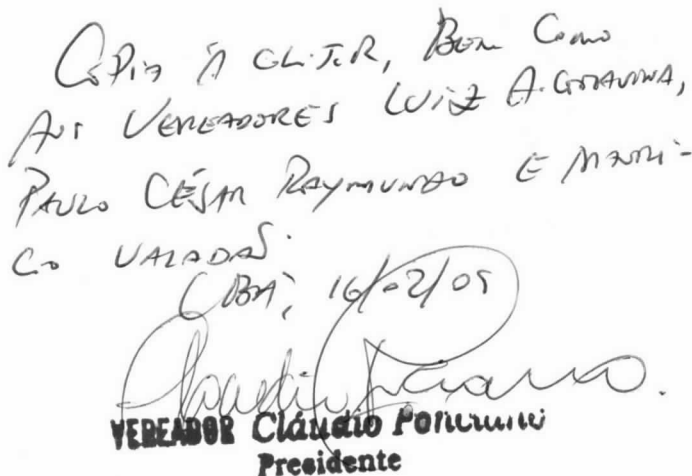 Cópia à C.L.J.R, Bem Como
Aos Vereadores Luiz A.
Paulo César Raymundo E Mauri-
cio Valadas.
Ubá, 16/02/09
VEREADOR Cláudio
Presidente